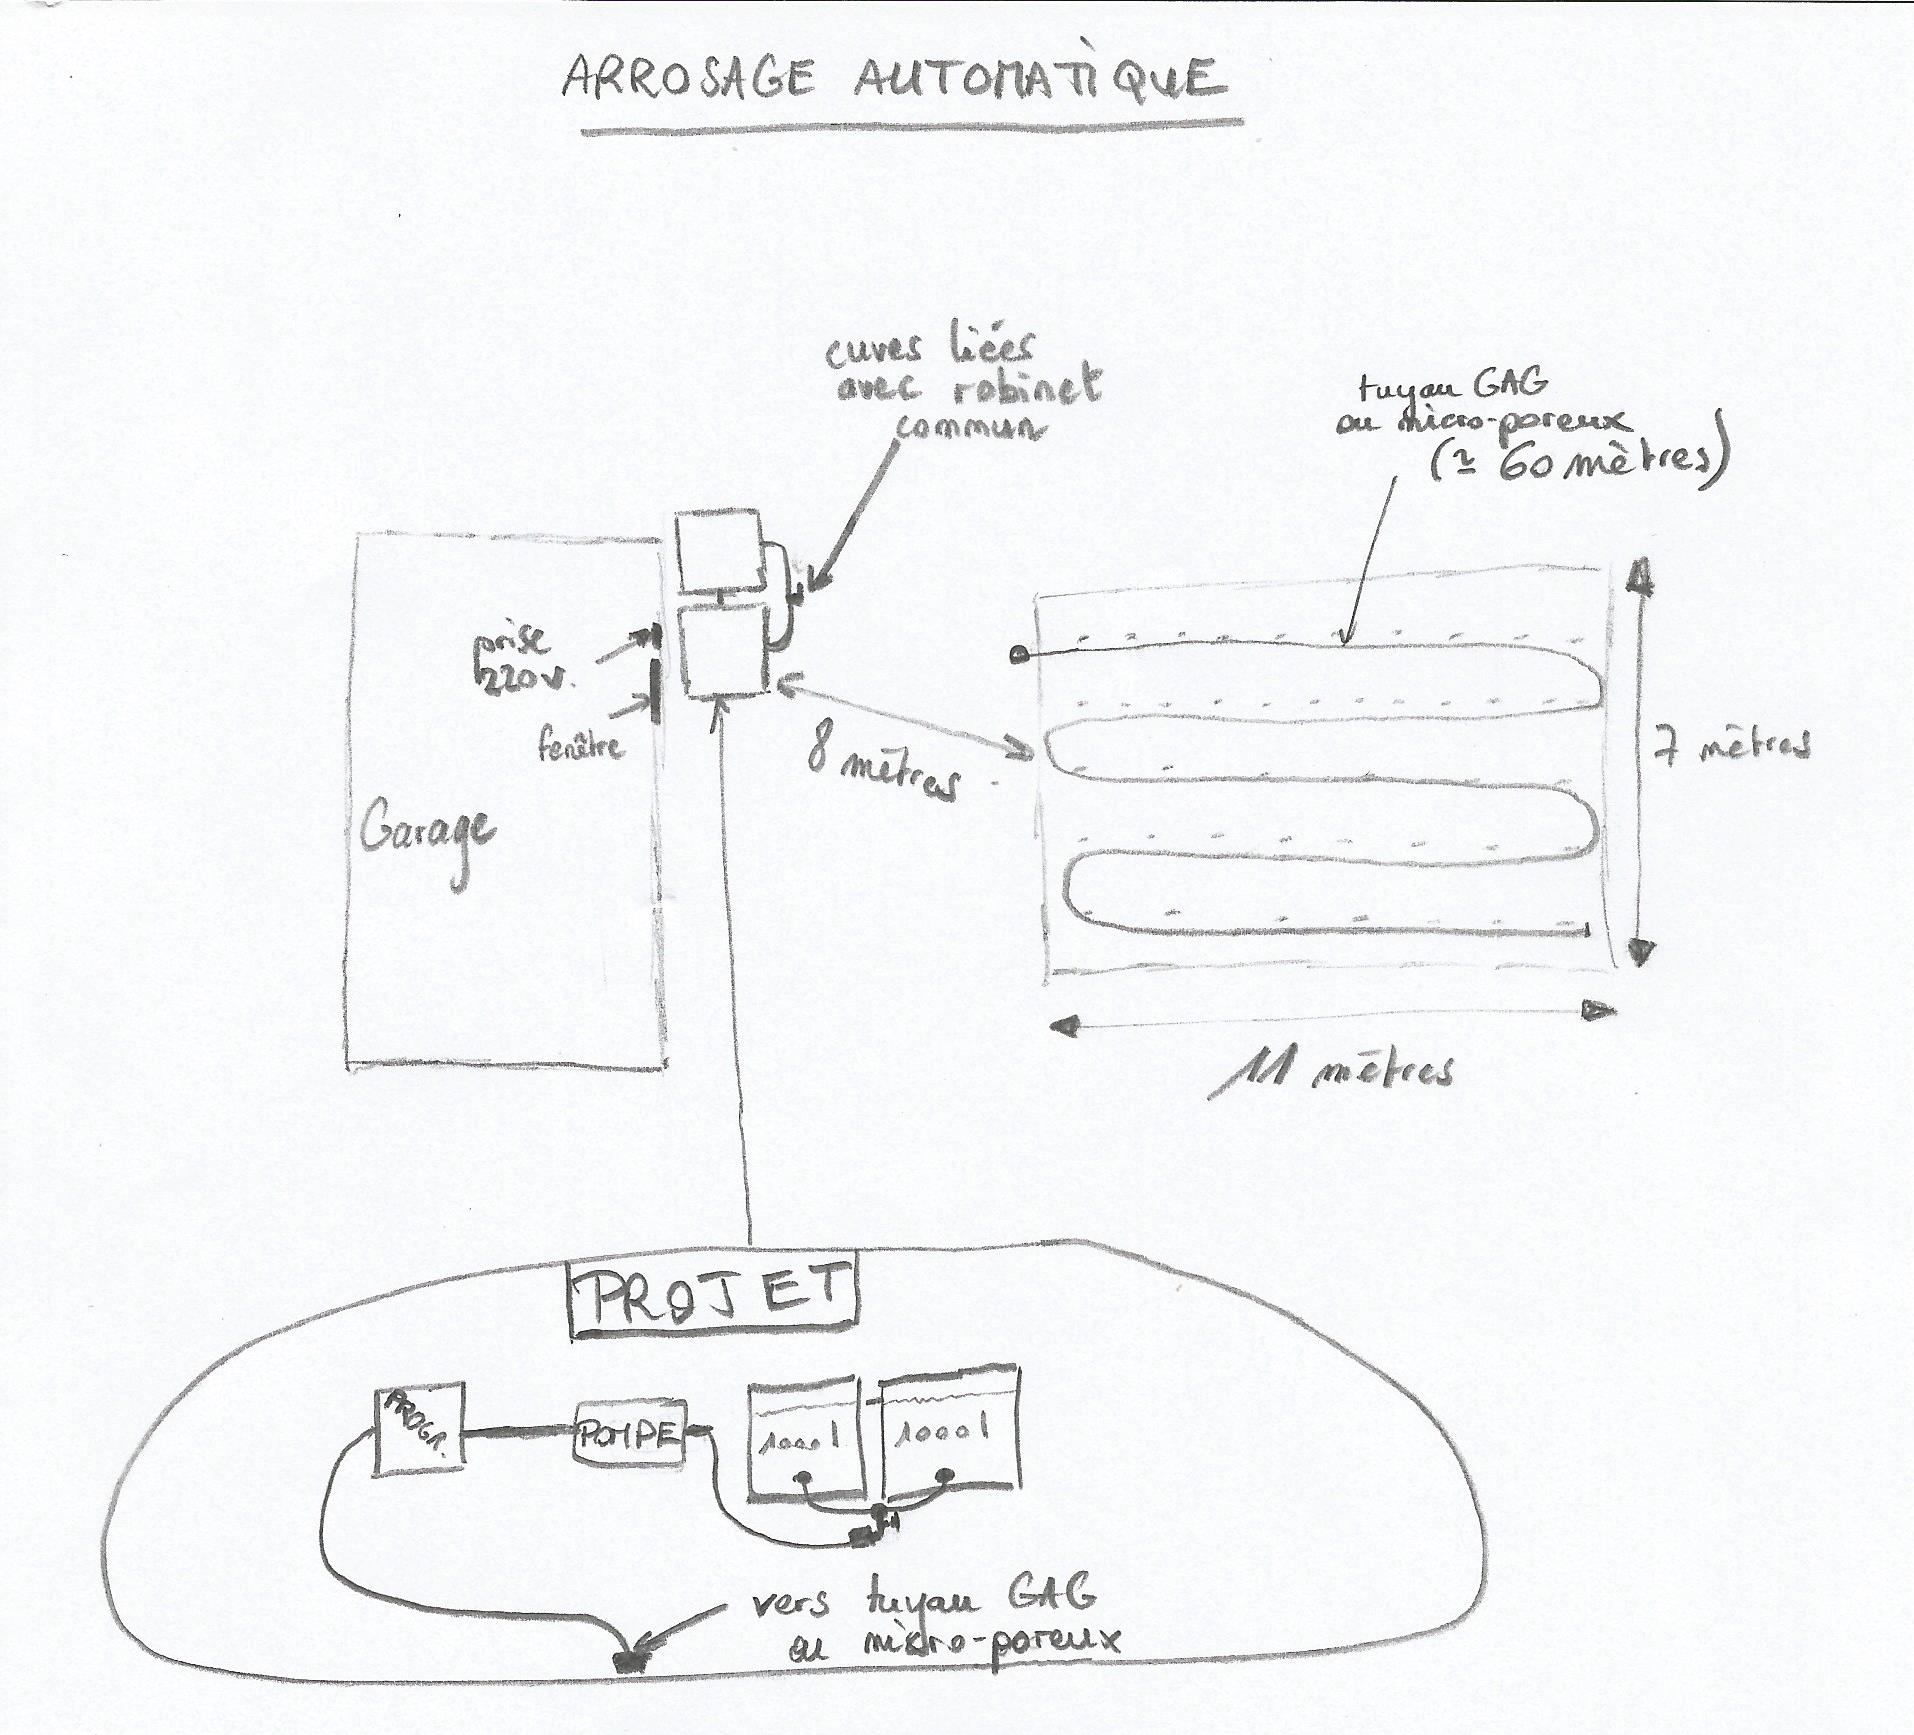 ARROSAGE AUTOMATIQUE
cuves liées
avec robinet
commun
tuyau GAG
ou micro-poreux
(≃ 60 mètres)
prise
220v.
fenêtre
8 mètres
7 mètres
Garage
11 mètres
PROJET
PROGR.
POMPE
1000l
1000l
vers tuyau GAG
ou micro-poreux